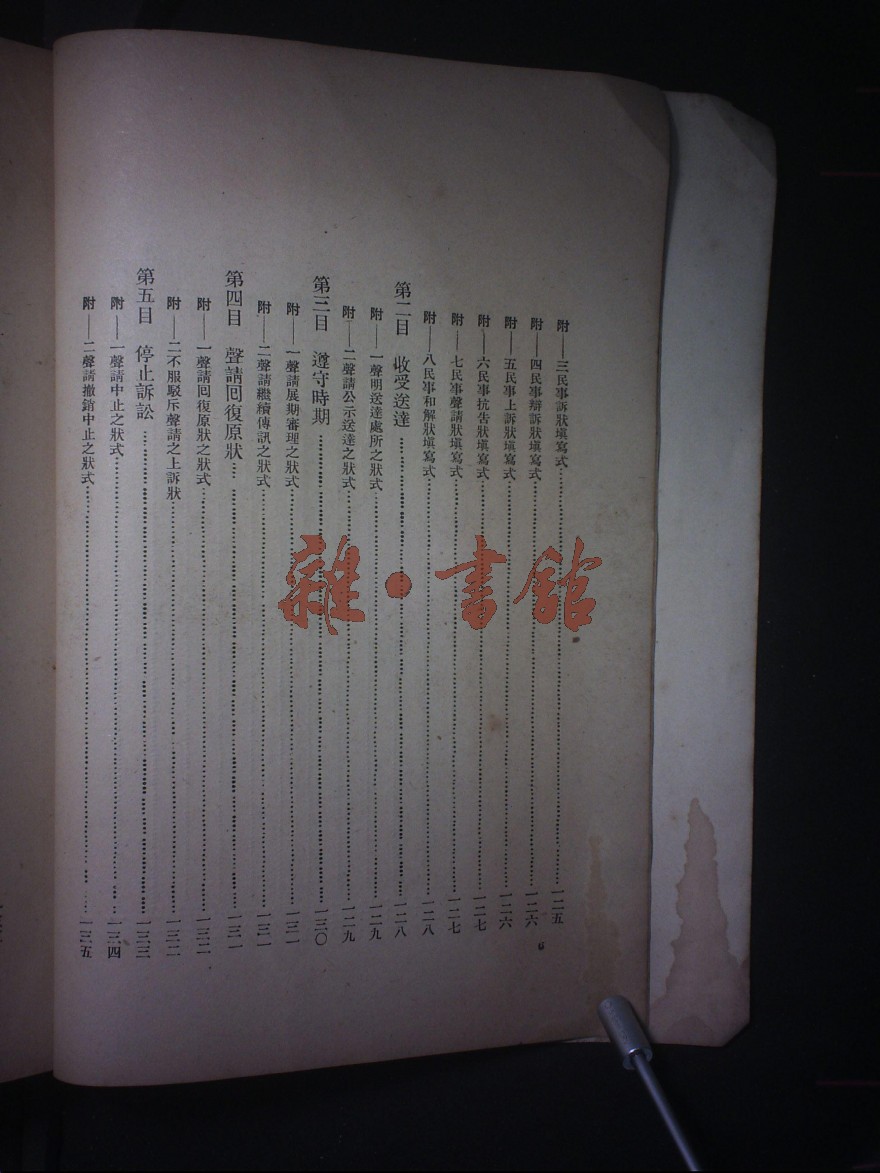 附——三民事訴狀塡寫式……一二五
附——四民事辯訴狀塡寫式……一二六
附——五民事上訴狀塡寫式……一二六
附——六民事抗吿狀塡寫式……一二七
附——七民事聲請狀塡寫式……一二七
附——八民事和解狀塡寫式……一二八
第二目　收受送達……一二八
附——一聲明送達處所之狀式……一二九
附——二聲請公示送達之狀式……一二九
第三目　遵守時期……一三〇
附——一聲請展期審理之狀式……一三一
附——二聲請繼續傳訊之狀式……一三一
第四目　聲請回復原狀……一三一
附——一聲請回復原狀之狀式……一三二
附——二不服駁斥聲請之上訴狀……一三二
第五目　停止訴訟……一三三
附——一聲請中止之狀式……一三四
附——二聲請撤銷中止之狀式……一三五
6
雜・書館